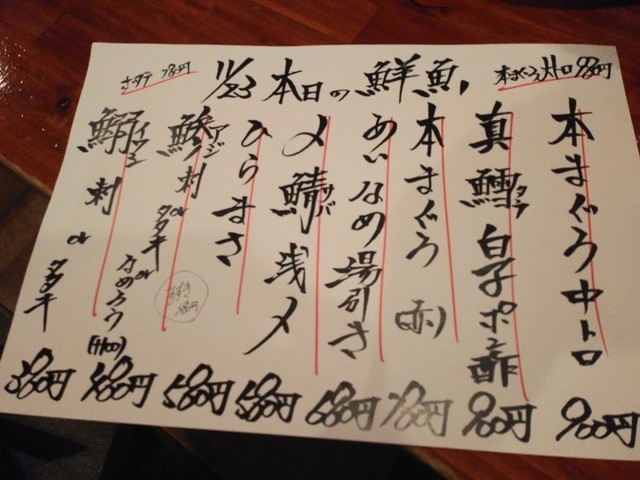 11/23 本日の鮮魚
本まぐろ大トロ 980円
ホタテ 780円
本まぐろ中トロ 900円
真鱈タラ白子ポン酢 900円
本まぐろ(赤) 780円
あいなめ湯引き 680円
〆鯖サバ浅〆 580円
ひらまさ 580円
鯵アジ刺orタタキorなめろう(+100) 480円
鰯イワシ刺orタタキ 380円